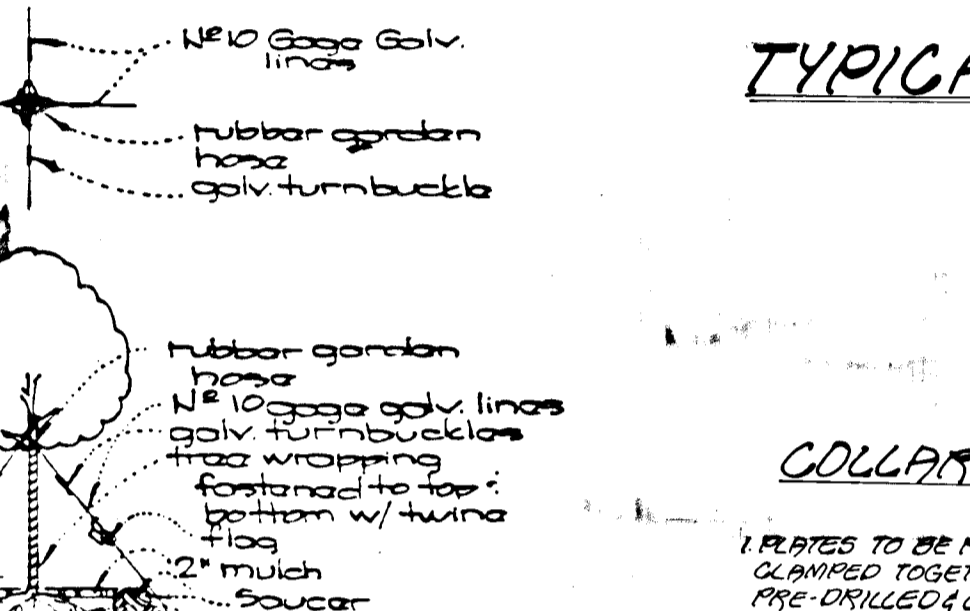 Nº 10 Gage Galv.
lines
rubber garden
hose
galv. turnbuckle
rubber garden
hose
Nº 10 gage galv. lines
galv. turnbuckles
tree wrapping
fastened to top &
bottom w/ twine
flag
2" mulch
saucer
TYPICA
COLLAR
1. PLATES TO BE
CLAMPED TOGET
PRE-DRILLED &